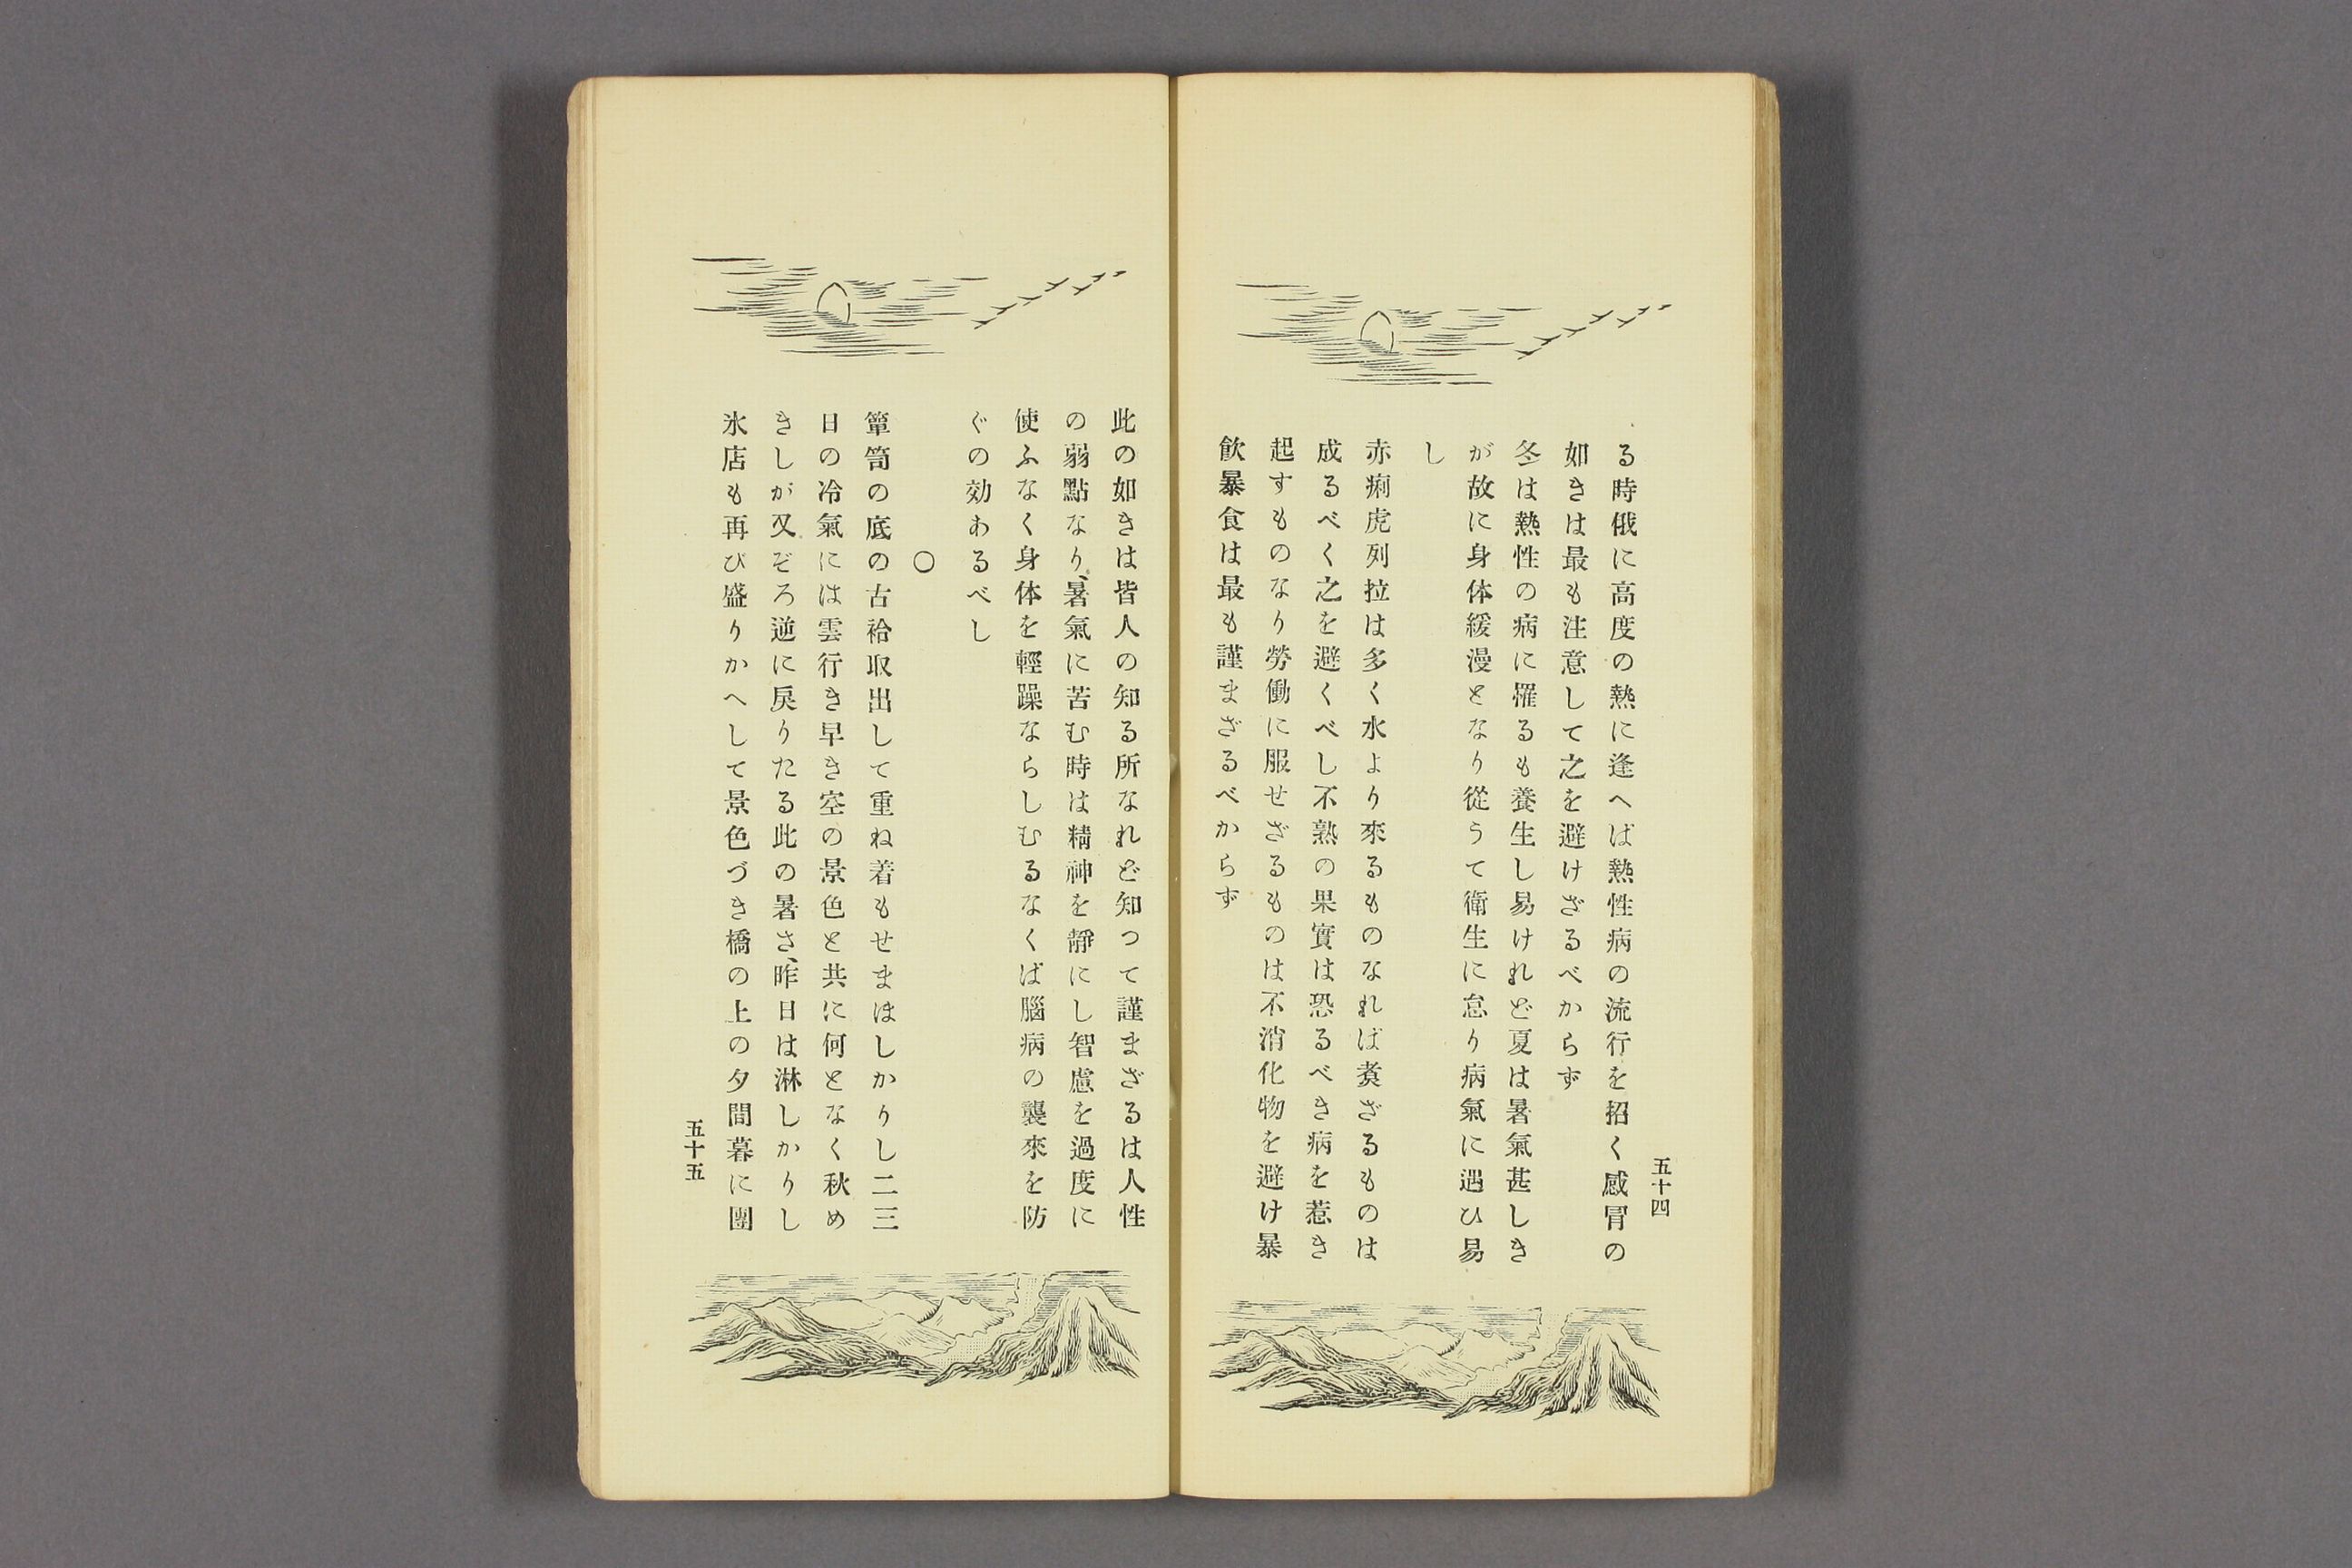 五十四
る時俄に高度の熱に逢へば熱性病の流行を招く感冒の
如きは最も注意して之を避けざるべからず
冬は熱性の病に罹るも養生し易けれど夏は暑氣甚しき
が故に身体緩漫となり從うて衛生に怠り病氣に遇ひ易
し
赤痢虎列拉は多く水より來るものなれば煑ざるものは
成るべく之を避くべし不熟の果實は恐るべき病を惹き
起すものなり勞働に服せざるものは不消化物を避け暴
飮暴食は最も謹まざるべからず
此の如きは皆人の知る所なれど知つて謹まざるは人性
の弱點なり、暑氣に苦む時は精神を靜にし智慮を過度に
使ふなく身体を輕躁ならしむるなくば腦病の襲來を防
ぐの効あるべし
○
簞笥の底の古袷取出して重ね着もせまほしかりし二三
日の冷氣には雲行き早き空の景色と共に何となく秋め
きしが又ぞろ逆に戻りたる此の暑さ、昨日は淋しかりし
氷店も再び盛りかへして景色づき橋の上の夕間暮に團
五十五